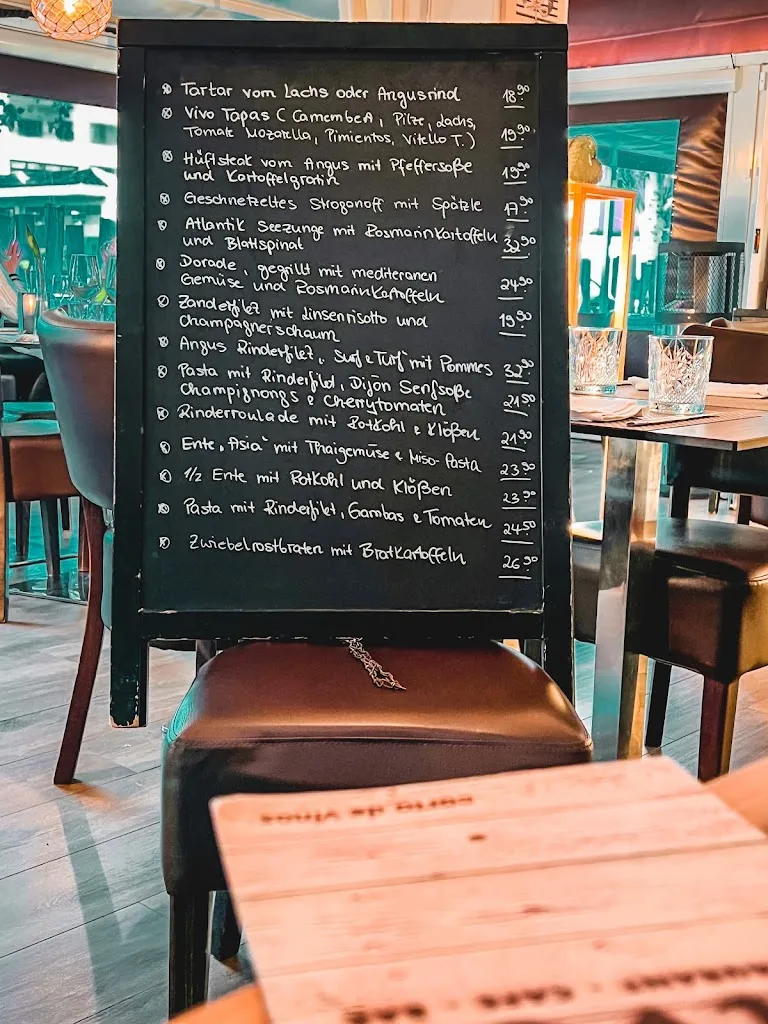 Tartar vom Lachs oder Angusrind 18.90
Vivo Tapas ( Camembert, Pilze, Lachs,
Tomate Mozarella, Pimientos, Vitello T.) 19.90
Hüftsteak vom Angus mit Pfeffersoße
und Kartoffelgratin 19.90
Geschnetzeltes Stroganoff mit Spätzle 17.90
Atlantik Seezunge mit Rosmarinkartoffeln
und Blattspinat 32.90
Dorade, gegrillt mit mediteranen
Gemüse und Rosmarinkartoffeln 24.90
Zanderfilet mit Linsenrisotto und
Champagnerschaum 19.90
Angus Rinderfilet, Surf & Turf mit Pommes 32.90
Pasta mit Rinderfilet, Dijon Senfsoße
Champignongs & Cherrytomaten 21.50
Rinderroulade mit Rotkohl & Klößen 21.90
Ente „Asia“ mit Thaigemüse & Miso-Pasta 23.90
1/2 Ente mit Rotkohl und Klößen 23.90
Pasta mit Rinderfilet, Gambas & Tomaten 24.50
Zwiebelrostbraten mit Bratkartoffeln 26.90
carta de vinos
CAFE · BAR